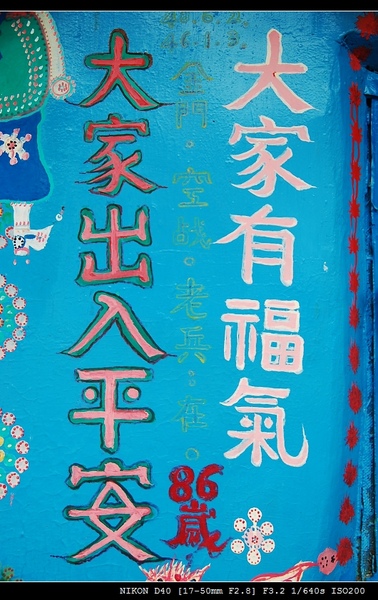 大家有福氣
金門。空战。老兵:在。
86歲
大家出入平安
NIKON D40 [17-50mm F2.8] F3.2 1/640s ISO200